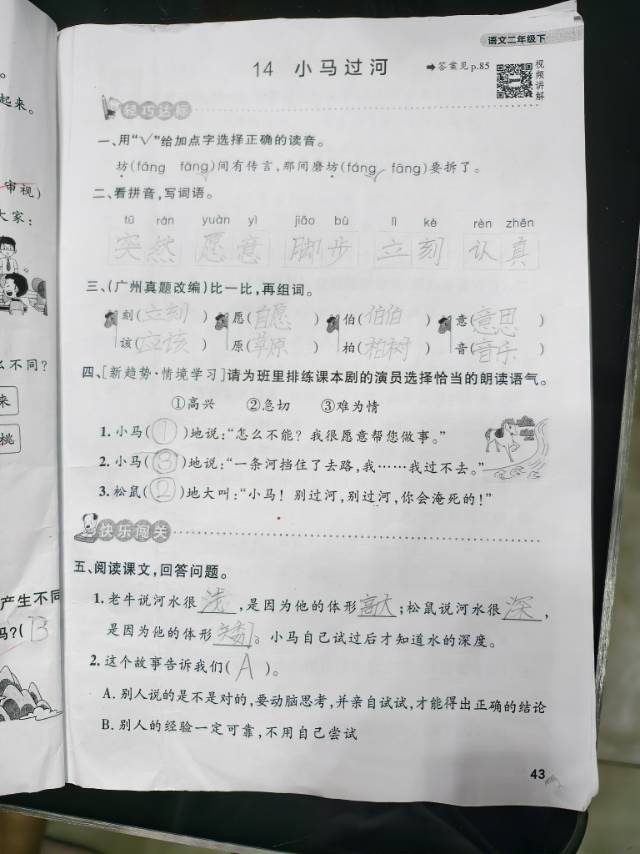 语文二年级下
起来。
14 小马过河
➡答案见p.85
视频讲解
轻巧达标
一、用“√”给加点字选择正确的读音。
坊(fáng fāng)间有传言,那间磨坊(fáng fāng)要拆了。
审视)
二、看拼音,写词语。
大家:
tū rán yuàn yì jiǎo bù lì kè rèn zhēn
突然 愿意 脚步 立刻 认真
三、(广州真题改编)比一比,再组词。
刻(立刻) 愿(自愿) 伯(伯伯) 意(意思)
该(应该) 原(草原) 柏(柏树) 音(音乐)
么不同?
四、[新趋势·情境学习]请为班里排练课本剧的演员选择恰当的朗读语气。
来
①高兴 ②急切 ③难为情
桃
1.小马(①)地说:“怎么不能?我很愿意帮您做事。”
2.小马(③)地说:“一条河挡住了去路,我……我过不去。”
3.松鼠(②)地大叫:“小马!别过河,别过河,你会淹死的!”
快乐闯关
五、阅读课文,回答问题。
产生不同
1.老牛说河水很浅,是因为他的体形高大;松鼠说河水很深,
吗?(B
是因为他的体形。小马自己试过后才知道水的深度。
2.这个故事告诉我们(A)。
A.别人说的是不是对的,要动脑思考,并亲自试试,才能得出正确的结论
B.别人的经验一定可靠,不用自己尝试
43